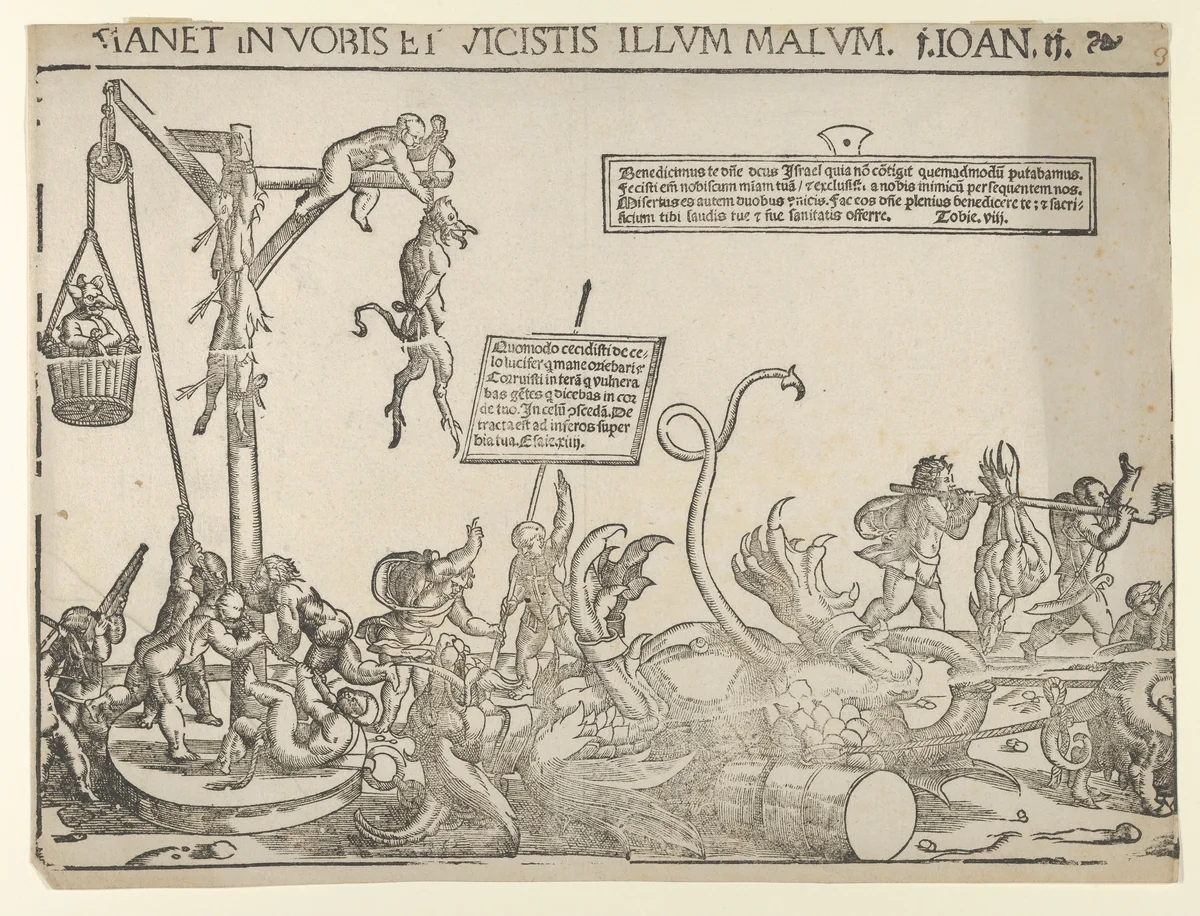 MANET IN VOBIS ET VICISTIS ILLVM MALVM. j.IOAN.ij.
3
Benedicimus te dñe deus Israel quia nõ cõtigit quemadmodũ putabamus.
Fecisti em̃ nobiscum miam tuã / ⁊ exclusisti a nobis inimicũ persequentem nos.
Misertus es autem duobus vnicis. Fac eos dñe plenius benedicere te : ⁊ sacri-
ficium tibi laudis tue ⁊ sue sanitatis offerre. Tobie. viij.
Quomodo cecidisti de ce-
lo lucifer q mane oriebaris?
Corruisti in terã q vulnera
bas gẽtes q dicebas in cor
de tuo. In celũ ꝯscedã. De
tracta est ad inferos super
bia tua. Esaie. xiiij.